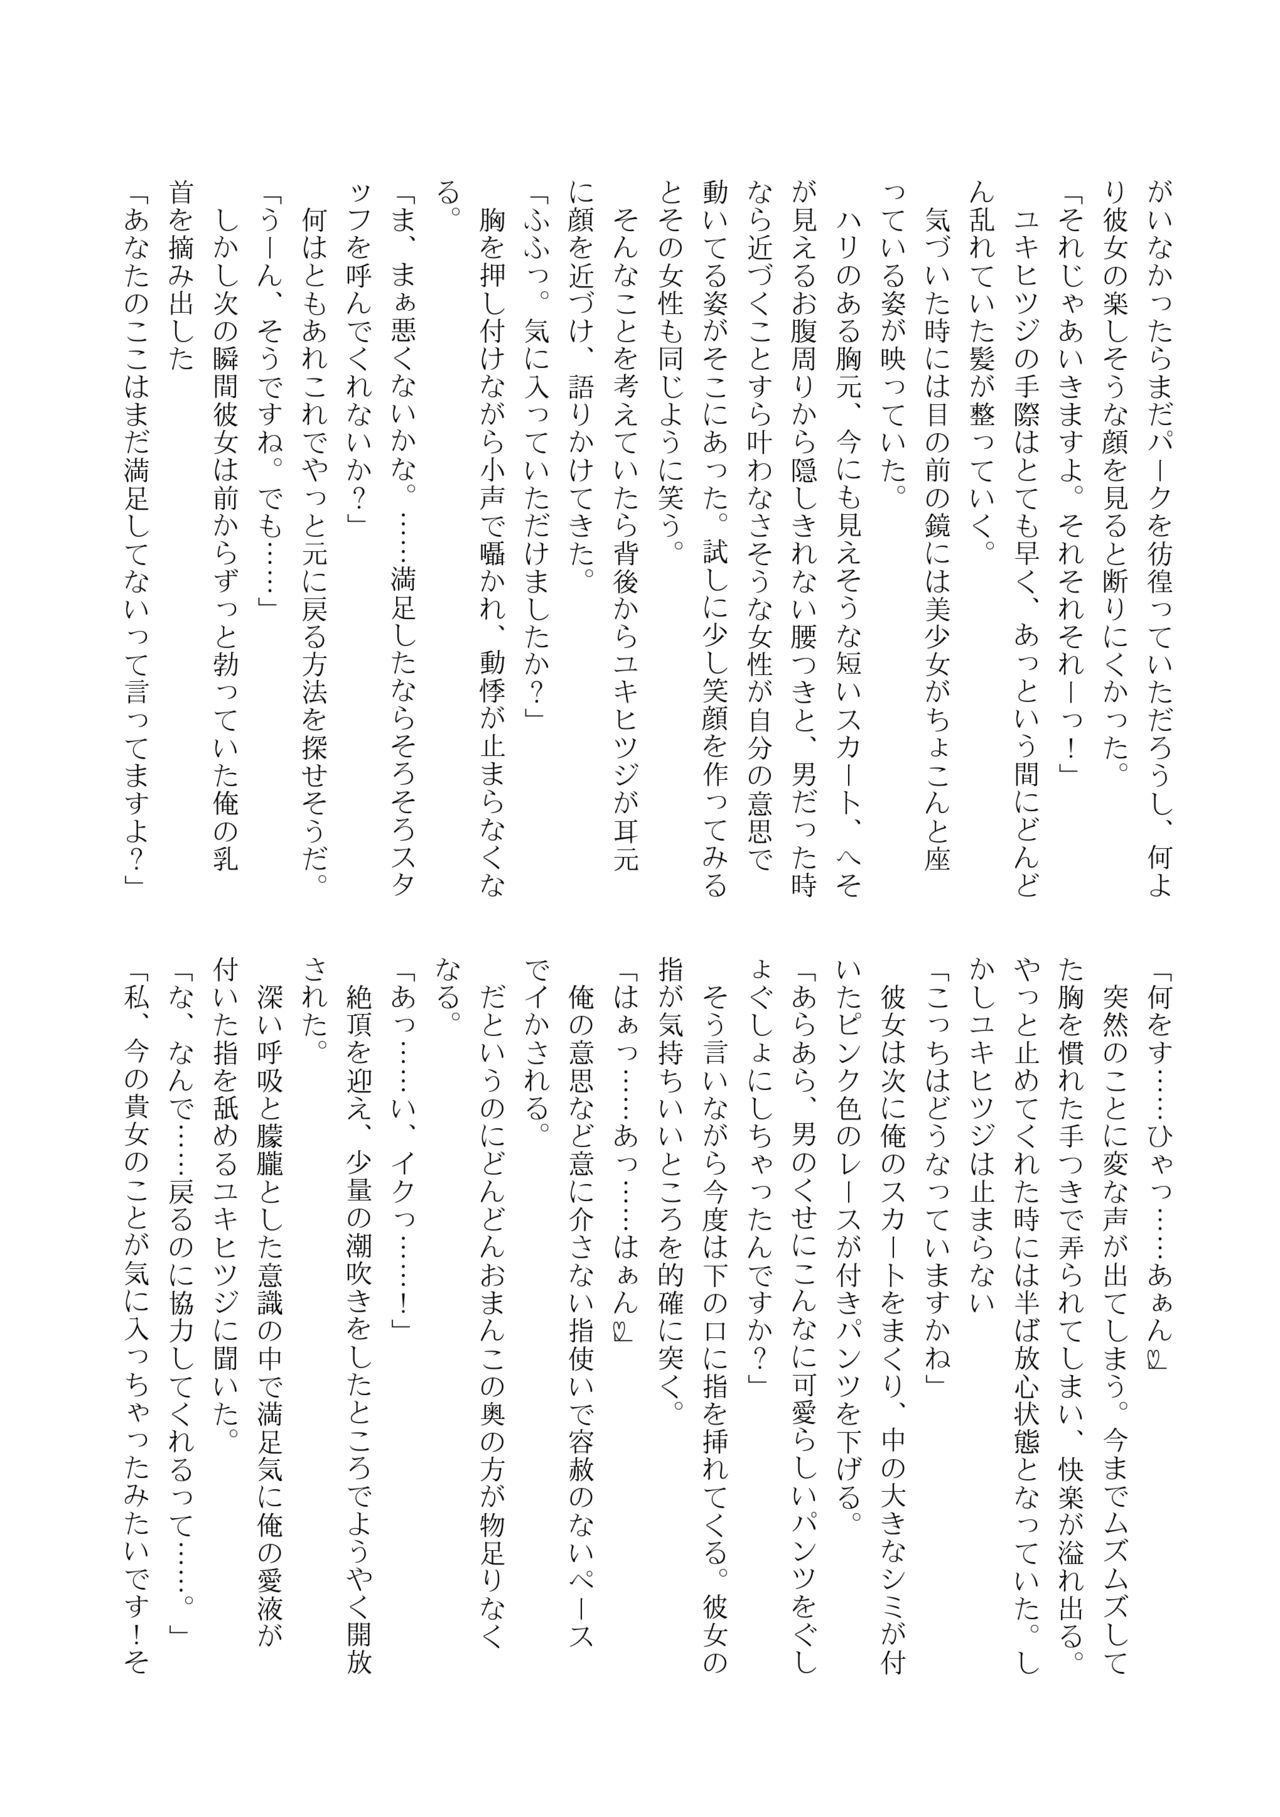 がいなかったらまだパークを彷徨っていただろうし、何よ
り彼女の楽しそうな顔を見ると断りにくかった。
「それじゃあいきますよ。それそれそれーっ！」
ユキヒツジの手際はとても早く、あっという間にどんど
ん乱れていた髪が整っていく。
気づいた時には目の前の鏡には美少女がちょこんと座
っている姿が映っていた。
ハリのある胸元、今にも見えそうな短いスカート、へそ
が見えるお腹周りから隠しきれない腰つきと、男だった時
なら近づくことすら叶わなさそうな女性が自分の意思で
動いてる姿がそこにあった。試しに少し笑顔を作ってみる
とその女性も同じように笑う。
そんなことを考えていたら背後からユキヒツジが耳元
に顔を近づけ、語りかけてきた。
「ふふっ。気に入っていただけましたか？」
胸を押し付けながら小声で囁かれ、動悸が止まらなくな
る。
「ま、まぁ悪くないかな。……満足したならそろそろスタ
ッフを呼んでくれないか？」
何はともあれこれでやっと元に戻る方法を探せそうだ。
「うーん、そうですね。でも……」
しかし次の瞬間彼女は前からずっと勃っていた俺の乳
首を摘み出した
「あなたのここはまだ満足してないって言ってますよ？」
「何をす……ひゃっ……あぁん♡」
突然のことに変な声が出てしまう。今までムズムズして
た胸を慣れた手つきで弄られてしまい、快楽が溢れ出る。
やっと止めてくれた時には半ば放心状態となっていた。し
かしユキヒツジは止まらない
「こっちはどうなっていますかね」
彼女は次に俺のスカートをまくり、中の大きなシミが付
いたピンク色のレースが付きパンツを下げる。
「あらあら、男のくせにこんなに可愛らしいパンツをぐし
ょぐしょにしちゃったんですか？」
そう言いながら今度は下の口に指を挿れてくる。彼女の
指が気持ちいいところを的確に突く。
「はぁっ……あっ……はぁん♡」
俺の意思など意に介さない指使いで容赦のないペース
でイかされる。
だというのにどんどんおまんこの奥の方が物足りなく
なる。
「あっ……い、イクっ……！」
絶頂を迎え、少量の潮吹きをしたところでようやく開放
された。
深い呼吸と朦朧とした意識の中で満足気に俺の愛液が
付いた指を舐めるユキヒツジに聞いた。
「な、なんで……戻るのに協力してくれるって……。」
「私、今の貴女のことが気に入っちゃったみたいです！そ